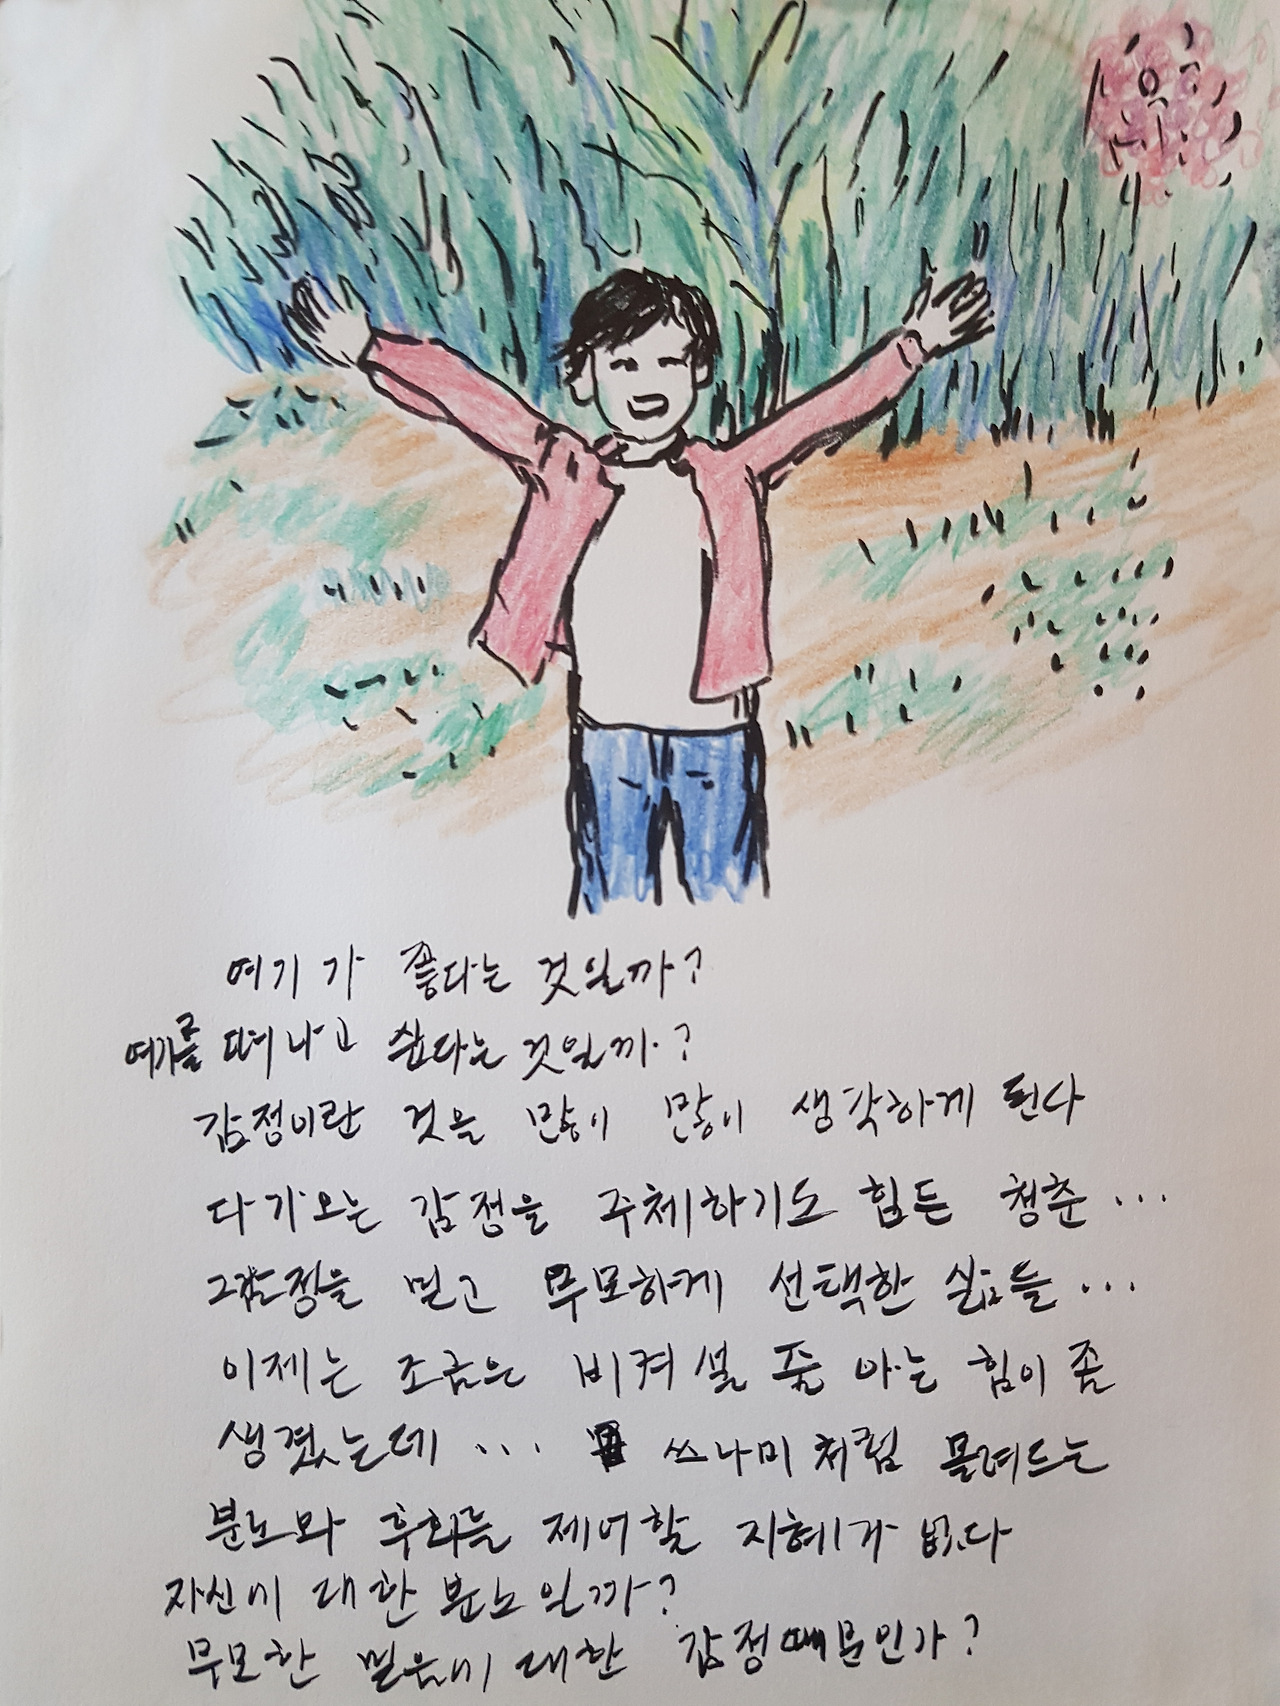 여기가 좋다는 것일까?
여기를 떠나고 싶다는것일까?
감정이란 것을 많이 많이 생각하게 된다
다가오는 감정을 주체하기도 힘든 청춘...
그감정을 믿고 무모하게 선택한 삶들...
이제는 조금은 비켜설 줄 아는 힘이 좀
생겼는데 ... 쓰나미처럼 몰려드는
분노와 후회를 제어할 지혜가 없다
자신에 대한 분노일까?
무모한 믿음에 대한 감정때문인가?